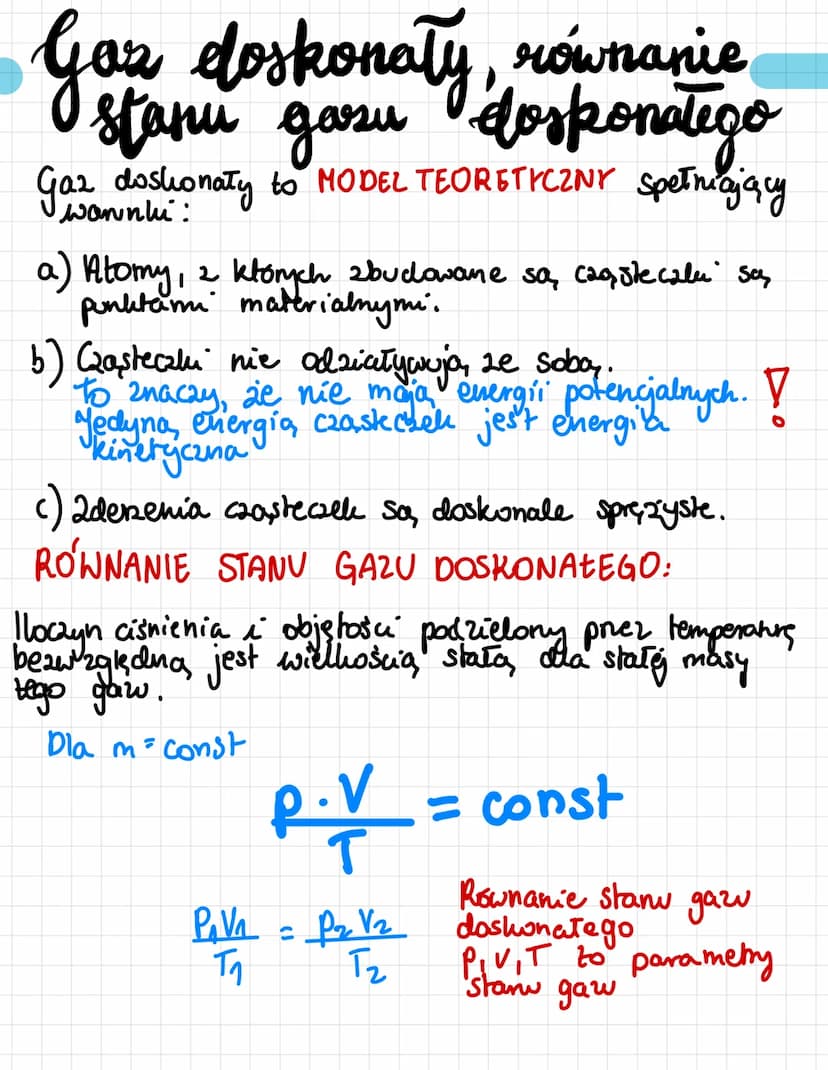 Gaz doskonały, równanie
stanu gazu doskonałego
Gaz doskonały to MODEL TEORETYCZNY spełniający
warunki:
a) Atomy, z których zbudowane są cząsteczki są
punktami materialnymi.
b) Cząsteczki nie odziaływują ze sobą.
To znaczy, że nie mają energii potencjalnych. !
Jedyną energią cząsteczek jest energia
kinetyczna
c) Zderzenia cząsteczek są doskonale sprężyste.
RÓWNANIE STANU GAZU DOSKONAŁEGO:
Iloczyn ciśnienia i objętości podzielony przez temperaturę
bezwzględną jest wielkością stałą dla stałej masy
tego gazu.
Dla m = const
p · V / T = const
P1V1 / T1 = P2V2 / T2
Równanie stanu gazu
doskonałego
P, V, T to parametry
stanu gazu